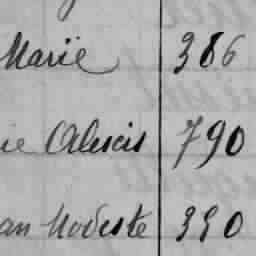 Marie 386
ie Alexis 790
an Modeste 390